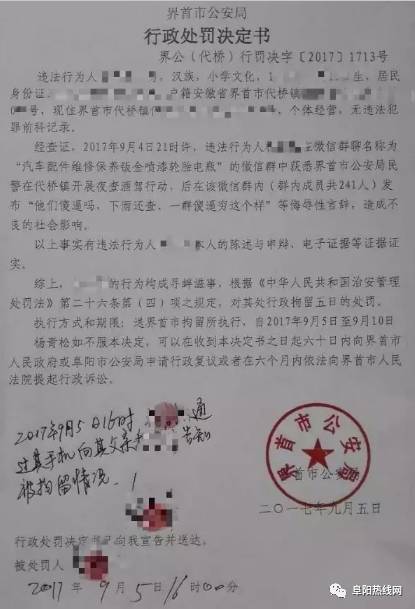 界首市公安局
行政处罚决定书
界公（代桥）行罚决字〔2017〕1713号
违法行为人 ，汉族，小学文化， 生，居民
身份证 户籍安徽省界首市代桥镇
0 号，现住界首市代桥镇 ，个体经营，无违法犯
罪前科记录。
经查证，2017年9月4日21时许，违法行为人 微信群聊名称为
“汽车配件维修保养钣金喷漆轮胎电瓶”的微信群中获悉界首市公安局民
警在代桥镇开展夜查酒驾行动，后在该微信群内（群内成员共241人）发
布“他们傻逼吗，下雨还查、一群傻逼穷这个样”等侮辱性言辞，造成不
良的社会影响。
以上事实有违法行为人 本人的陈述与申辩、电子证据等证据证
实。
综上， 的行为构成寻衅滋事，根据《中华人民共和国治安管理
处罚法》第二十六条第（四）项之规定，对其处行政拘留五日的处罚。
执行方式和期限：送界首市拘留所执行，自2017年9月5日至9月10日
杨青松如不服本决定，可以在收到本决定书之日起六十日内向界首市
人民政府或阜阳市公安局申请行政复议或者在六个月内依法向界首市人民
法院提起行政诉讼。
2017年9月5日16时 通
过其手机向其父亲 告知
被拘留情况。
界首市公安局
首市公安局
二〇一七年九月五日
行政处罚决定书已向我宣告并送达。
被处罚人
2017年9月5日16时00分
阜阳热线网